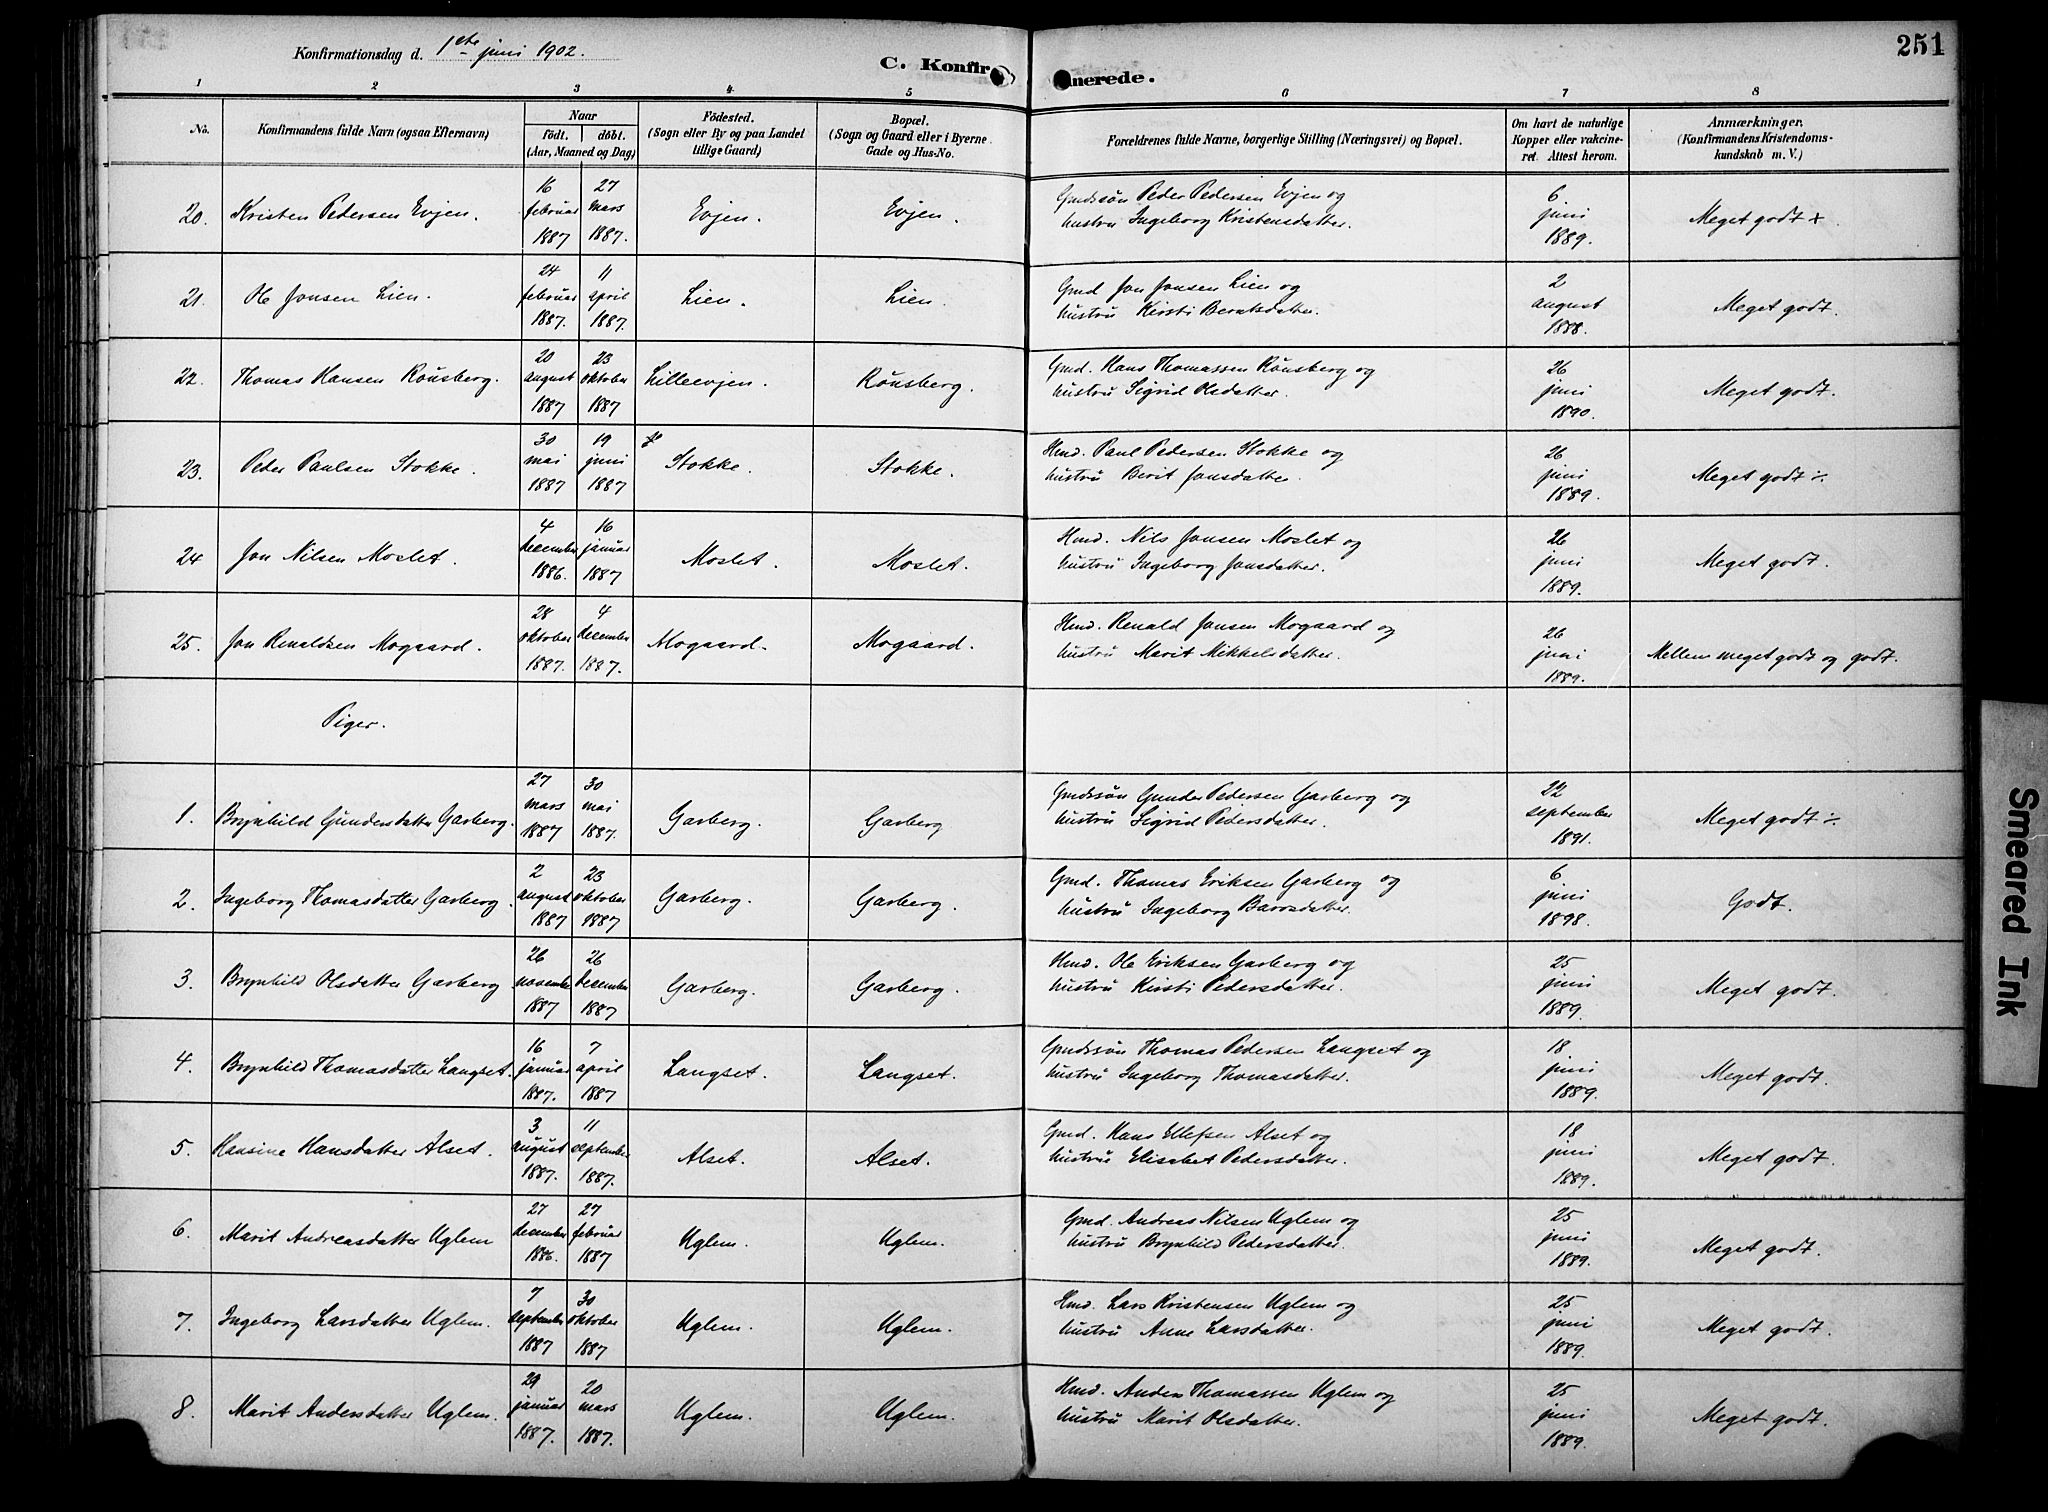 251
Konfirmationsdag d. 1ste juni 1902.
C. Konfir merede.
1 2 3 4 5 6 7 8
No.
Konfirmandens fulde Navn (ogsaa Efternavn)
Naar
født. døbt.
(Aar, Maaned og Dag)
Fødested.
(Sogn eller By og paa Landet
tillige Gaard)
Bopæl.
(Sogn og Gaard eller i Byerne
Gade og Hus-No.
Forældrenes fulde Navne, borgerlige Stilling (Næringsvei) og Bopæl.
Om havt de naturlige
Kopper eller vakcine-
ret. Attest herom.
Anmærkninger.
(Konfirmandens Kristendoms-
kundskab m. V.)
20. Kristen Pedersen Evjen. 16 februar 1887 27 mars 1887. Evjen. Evjen. Gmdssøn Peder Pedersen Evjen og
hustru Ingeborg Kristensdatter. 6 juni 1889. Meget godt +.
21. Ole Jonsen Lien. 24 februar 1887. 11 april 1887. Lien. Lien. Gmd Jon Jonsen Lien og
hustru Kirsti Berntsdatter. 2 august 1888. Meget godt.
22. Thomas Hansen Rønsberg. 20 august 1887 23 oktober 1887 Lilleevjen. Rønsberg. Gmd. Hans Thomassen Rønsberg og
hustru Sigrid Olsdatter. 26 juni 1890. Meget godt.
23. Peder Paulsen Stokke. 30 mai 1887 19 juni 1887 Stokke. Stokke. Hmd. Paul Pedersen Stokke og
hustru Berit Jonsdatter. 26 juni 1889. Meget godt ÷
24 Jon Nilsen Moslet. 4 december 1886. 16 januar 1887 Moslet. Moslet. Hmd. Nils Jonsen Moslet og
hustru Ingeborg Jonsdatter. 26 juni 1889. Meget godt.
25. Jon Renaldsen Mogaard. 28 oktober 1887. 4 december 1887. Mogaard. Mogaard. Hmd. Renald Jonsen Mogaard og
hustru Marit Mikkelsdatter. 26 juni 1889. Mellem meget godt og godt.
Piger.
1. Brynhild Gundersdatter Garberg. 27 mars 1887 30 mai 1887. Garberg. Garberg Gmdssøn Gunder Pedersen Garberg og
hustru Sigrid Pedersdatter. 22 september 1891. Meget godt ÷
2. Ingeborg Thomasdatter Garberg. 2 august 1887 23 oktober 1887 Garberg. Garberg. Gmd. Thomas Eriksen Garberg og
hustru Ingeborg Barosdatter. 6 juni 1898. Godt.
3. Brynhild Olsdatter Garberg 26 november 1887 26 december 1887 Garberg. Garberg. Hmd. Ole Eriksen Garberg og
hustru Kirsti Pedersdatter. 25 juni 1889. Meget godt.
4. Brynhild Thomasdatter Langset. 16 januar 1887. 7 april 1887 Langset. Langset. Gmdssøn Thomas Pedersen Langset og
hustru Ingeborg Thomasdatter. 18 juni 1889. Meget godt.
5. Hansine Hansdatter Alset. 3 august 1887. 11 september 1887. Alset. Alset. Gmd. Hans Ellefsen Alset og
hustru Elisabet Pedersdatter. 18 juni 1889. Meget godt.
6. Marit Andreasdatter Uglem 27 december 1886. 27 februar 1887 Uglem. Uglem. Gmd. Andreas Nilsen Uglem og
hustru Brynhild Pedersdatter. 25 juni 1889. Meget godt.
7. Ingeborg Larsdatter Uglem. 7 september 1887 30 oktober 1887 Uglem. Uglem. Hmd. Lars Kristensen Uglem og
hustru Anne Larsdatter. 25 juni 1889. Meget godt.
8. Marit Andersdatter Uglem. 29 januar 1887. 20 mars 1887. Uglem. Uglem. Hmd. Anders Thomassen Uglem og
hustru Marit Olsdatter. 25 juni 1889. Meget godt.
Smeared Ink